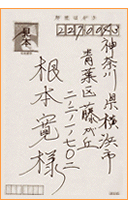 郵便はがき
見本
神奈川県横浜市
青葉区藤が丘
二-二-一-七〇二
根本寛様